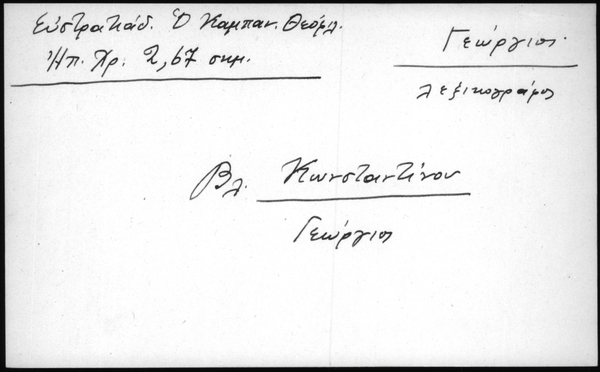 Εὐστρατιάδ. Ὁ Καμπαν. Θεόφιλ.
Ἠπ. Χρ. 2, 67 σημ.
Γεώργιος
λεξικογράφος
Βλ. Κωνσταντίνου
Γεώργιος